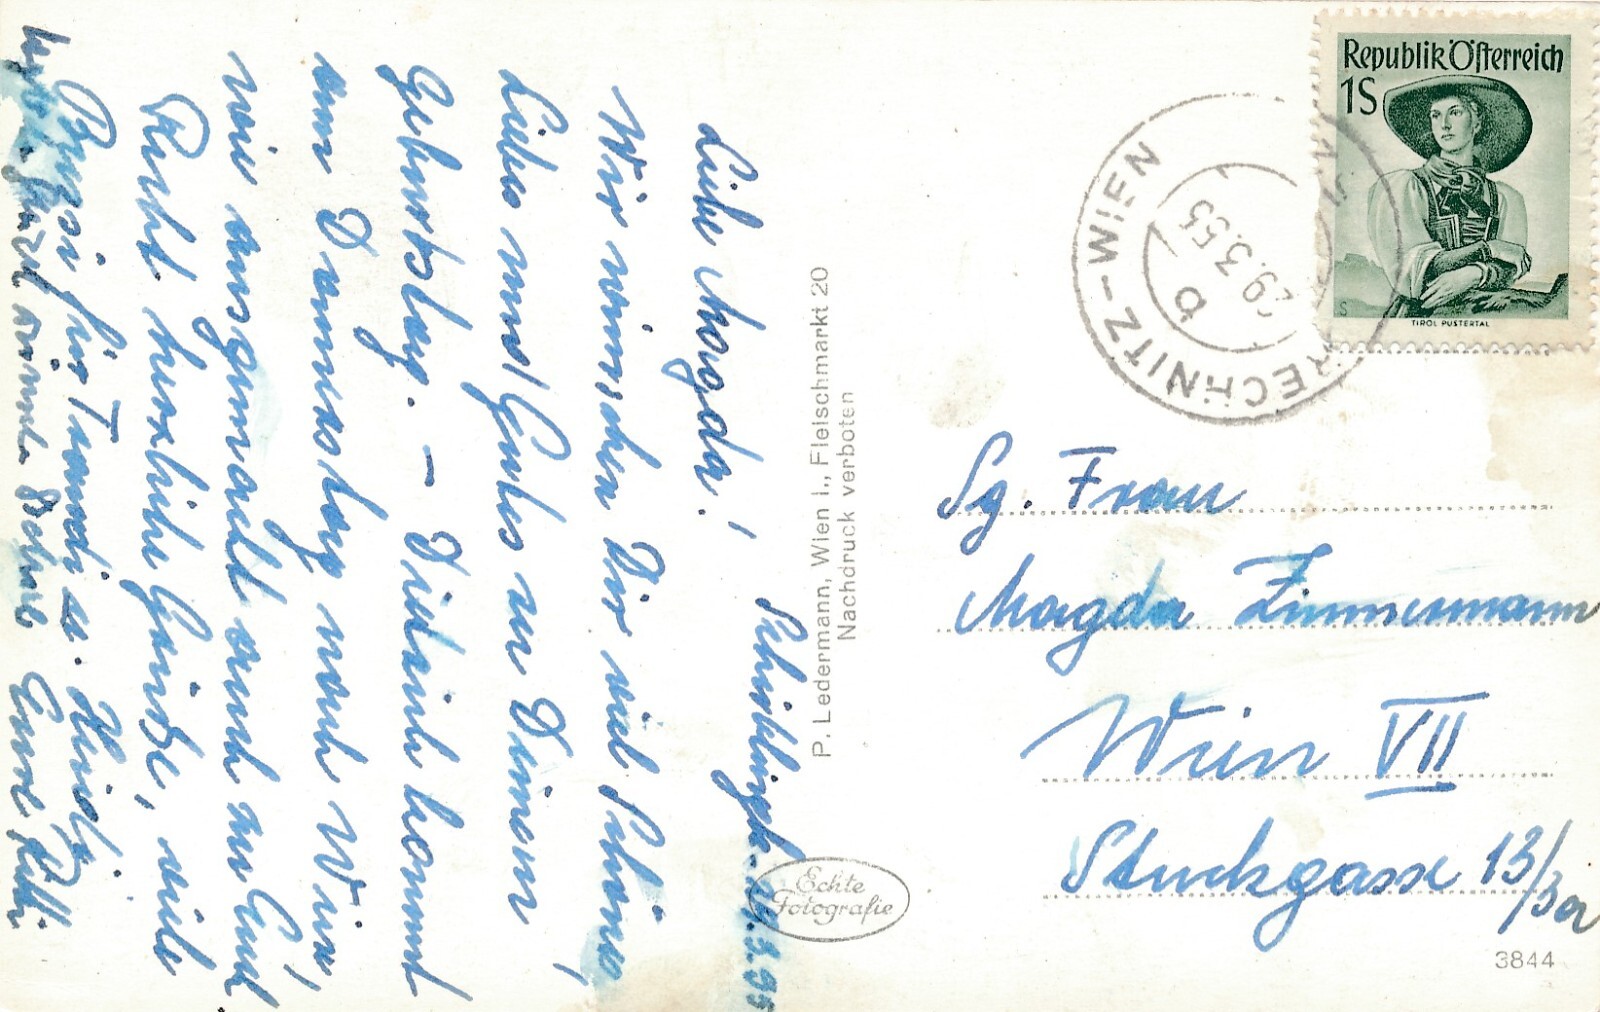 Schicklingsh. 29.3.55
Liebe Magda!
Wir wünschen Dir viel Schönes,
Liebes und Gutes zu Deinem
Geburtstag. – Vielleicht kommt
am Donnerstag nach Wien,
wir ausgemacht und zu Euch
Recht herzliche Grüße, viele
Bussi für Traudi u. Heidi,
Eure Hilli
P. Ledermann, Wien I., Fleischmarkt 20
Nachdruck verboten
Echte
Fotografie
Republik Österreich
1S
TIROL PUSTERTAL
RECHNITZ–WIEN
29.3.55
b
Sg. Frau
Magda Zimmermann
Wien VII
Stuckgasse 13/3a
3844